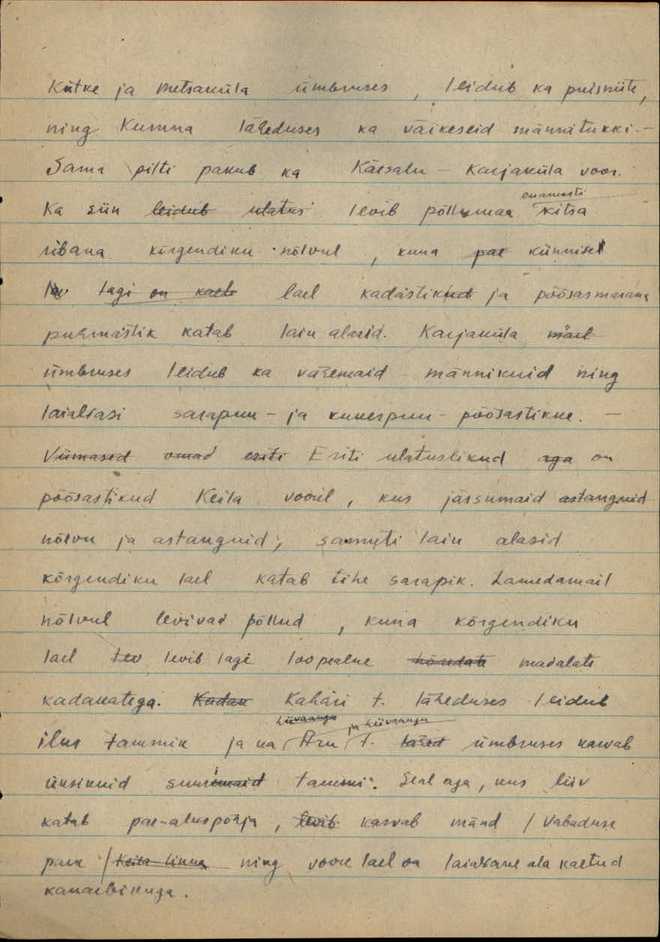 Kütke ja Metsaküla ümbruses, leidub ka puisniite,
ning Kumna läheduses ka väikeseid männitukki. -
Sama pilti pakub ka Käesalu - Karjaküla voor.
enamasti
Ka siin leidub ulatus levib põllumaa kitsa
ribana kõrgendiku nõlvul, kuna pae künnisel
lagi on kaetu lael kadastikud ja põõsasmarana
puhmastik katab laiu alasid. Karjaküla mäel
ümbruses leidub ka vähemaid männikuid ning
laialtasi sarapuu- ja kukerpuu-põõsastikke. -
Viimased omad eriti Eriti ulatuslikud aga on
põõsastikud Keila voorel, kus järsumaid astanguid
nõlvu ja astanguid, samuti laiu alasid
kõrgendiku lael katab tihe sarapik. Lamedamail
nõlvul levivad põllud, kuna kõrgendiku
lael lev levib lage loopealne madalate
kadakatega. Kadak Kahäri t. läheduses leidub
liivaaugu ja liivaaugu
ilus tammik ja ka Aru t. ümbruses kasvab
üksikuid suuremaid tammi. Seal aga, kus liiv
katab pae-aluspõhja, levib kasvab mänd / Vabaduse
park / Keila linna ning voore lael on laialdane ala kaetud
kanarbikuga.